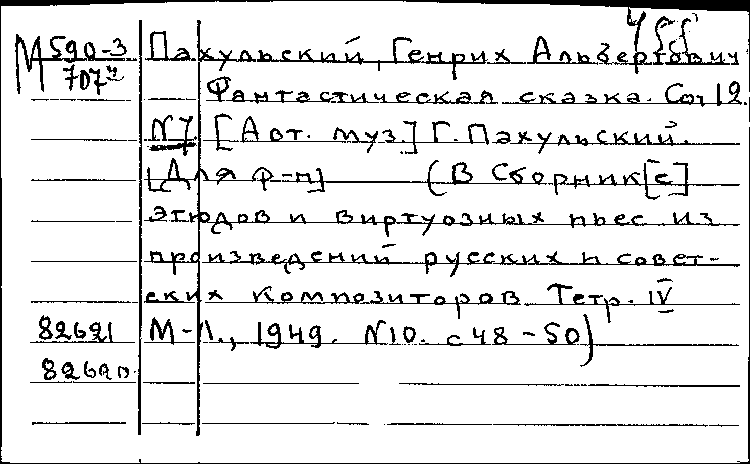 М 590-3 Пахульский, Генрих Альбертович
707 Фантастическая сказка. Соч 12.
№7. [Авт. муз.] Г. Пахульский.
[Для ф-п] (В Сборник[е]
этюдов и виртуозных пьес из
произведений русских и совет-
ских композиторов. Тетр. IV
82621 М-Л., 1949. N10. с 48-50)